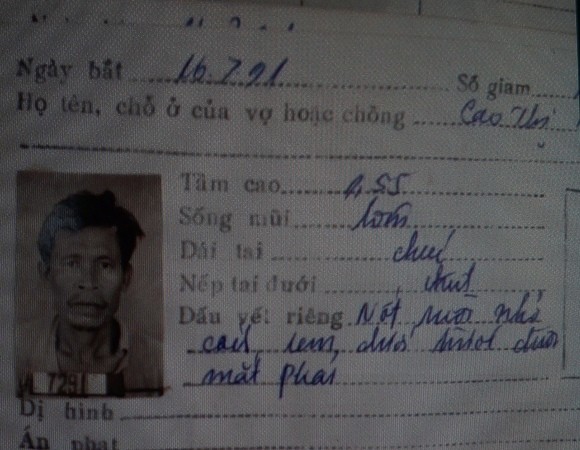 Ngày bắt 16.7.91 Số giam
Họ tên, chỗ ở của vợ hoặc chồng Cao Thị
Tầm cao 1,55
Sống mũi lõm
Dái tai chúc
Nếp tai dưới
Dấu vết riêng Nốt ruồi nhỏ
cách 1cm, dưới trước đuôi
mắt phải
729
Dị hình
Án phạt